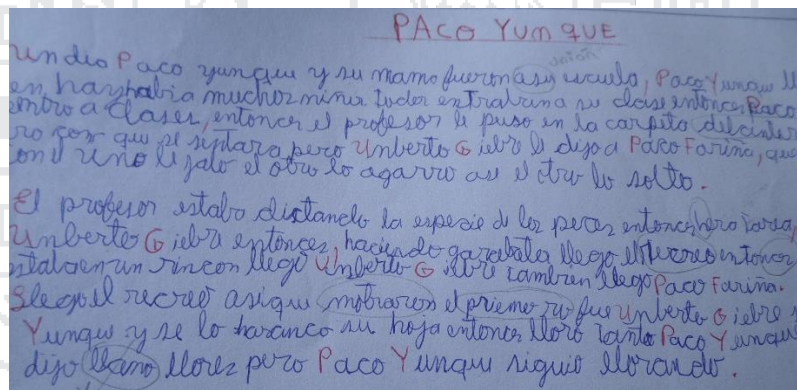 PACO YUNQUE
un dia Paco yunque y su mama fueron asu escuela, Paco Yunque ll
en hay habia muchos niños todos entraban a su clase entonces Paco
entro a clases, entonces el profesor le puso en la carpeta del
ro con que se sintara pero Unberto G iebre le dijo a Paco Fariña, que
con el uno le jalo el otro lo agarro asi el otro lo solto.
El profesor estabo dictando la especie de los peces entonces
Unberto G iebre entonces, haciendo garabatos llego el recreo entonces
estaba en un rincon llego Unberto G iebre tambien llego Paco Fariña.
Llego el recreo asi que el priemero fue Unberto G iebre
Yunque y se lo haranco su hoja entonces lloro tanto Paco Yunque
dijo llano llores pero Paco Yunque siguio llorando.